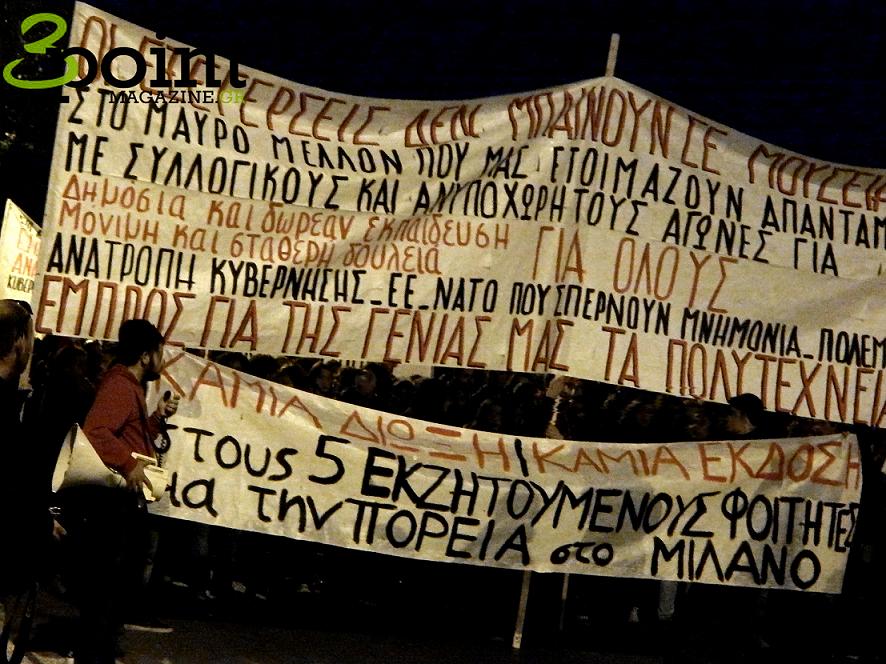 3point
MAGAZINE.GR
ΟΙ ΕΞΕΓΕΡΣΕΙΣ ΔΕΝ ΜΠΑΙΝΟΥΝ ΣΕ ΜΟΥΣΕΙΑ
ΣΤΟ ΜΑΥΡΟ ΜΕΛΛΟΝ ΠΟΥ ΜΑΣ ΕΤΟΙΜΑΖΟΥΝ ΑΠΑΝΤΑΜ
ΜΕ ΣΥΛΛΟΓΙΚΟΥΣ ΚΑΙ ΑΝΥΠΟΧΩΡΗΤΟΥΣ ΑΓΩΝΕΣ ΓΙΑ
Δημόσια και δωρεάν εκπαίδευση
Μόνιμη και σταθερή δουλειά
ΓΙΑ ΟΛΟΥΣ
ΑΝΑΤΡΟΠΗ ΚΥΒΕΡΝΗΣΗΣ_ΕΕ_ΝΑΤΟ ΠΟΥ ΣΠΕΡΝΟΥΝ ΜΝΗΜΟΝΙΑ_ΠΟΛΕΜ
ΕΜΠΡΟΣ ΓΙΑ ΤΗΣ ΓΕΝΙΑΣ ΜΑΣ ΤΑ ΠΟΛΥΤΕΧΝΕΙ
ΚΑΜΙΑ ΔΙΩΞΗ/ΚΑΜΙΑ ΕΚΔΟΣΗ
στους 5 ΕΚΖΗΤΟΥΜΕΝΟΥΣ ΦΟΙΤΗΤΕΣ
για την ΠΟΡΕΙΑ στο ΜΙΛΑΝΟ